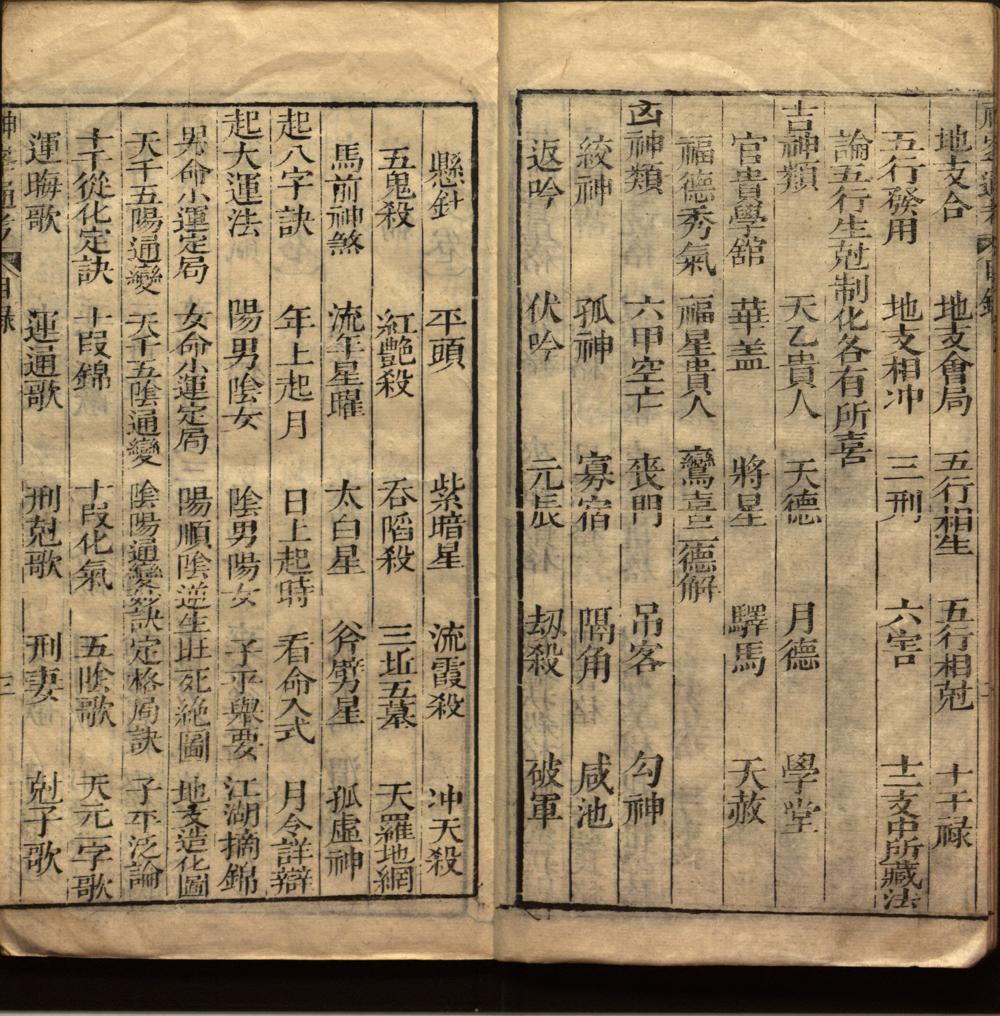 地支合 地支會局 五行相生 五行相尅 十干祿
五行發用 地支相冲 三刑 六害 十二支中所藏法
論五行生尅制化各有所喜
吉神類 天乙貴人 天德 月德 學堂
官貴學舘 華盖 將星 驛馬 天赦
福德秀氣 福星貴人 鸞喜二德解
凶神類 六甲空亡 喪門 吊客 勾神
絞神 孤神 寡宿 隔角 咸池
返吟 伏吟 元辰 刼殺 破軍
懸針 平頭 紫暗星 流霞殺 冲天殺
五鬼殺 紅艷殺 吞陷殺 三坵五墓 天羅地網
馬前神煞 流年星曜 太白星 斧劈星 孤虛神
起八字訣 年上起月 日上起時 看命入式 月令詳辯
起大運法 陽男陰女 陰男陽女 子平舉要 江湖摘錦
男命小運定局 女命小運定局 陽順陰逆生旺死絶圖 地支造化圖
天干五陽通變 天干五陰通變 陰陽通變玅訣 定格局訣 子平泛論
十干從化定訣 十叚錦 十叚化氣 五陰歌 天元一字歌
運晦歌 運通歌 刑尅歌 刑妻 尅子歌
目錄 三